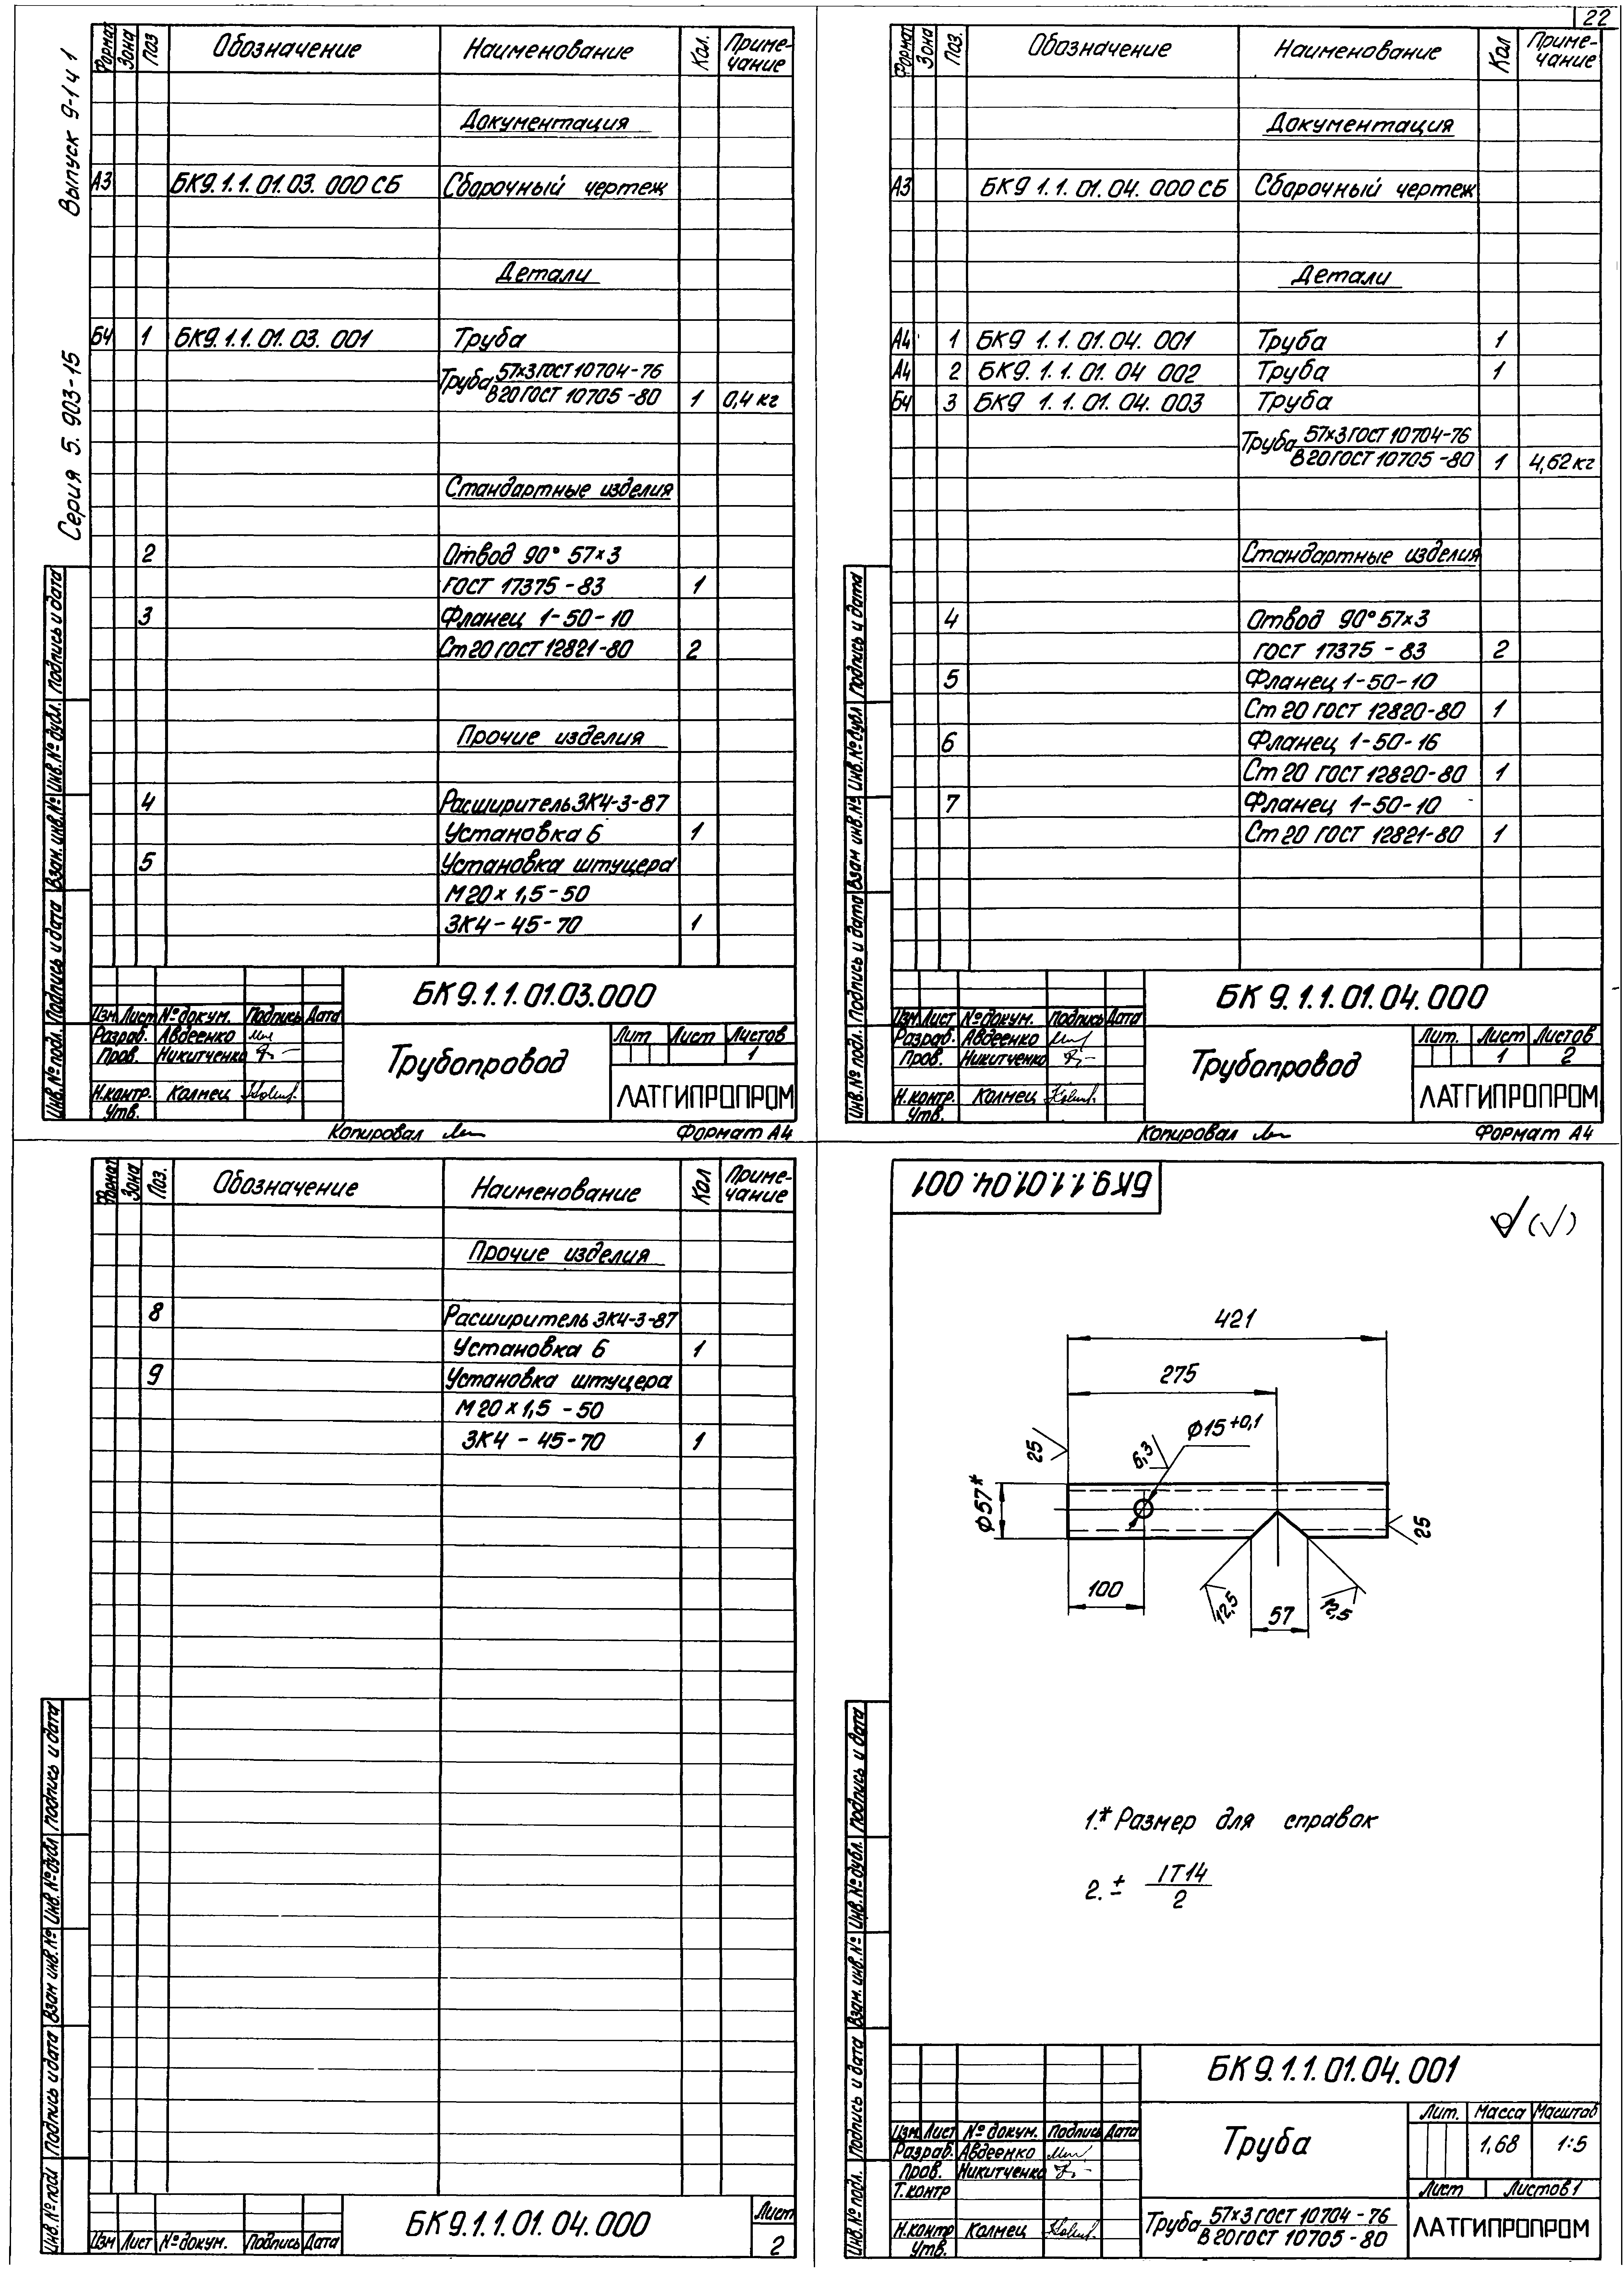 22
Серия 5.903-15 Выпуск 9-14 1
Формат Зона Поз Обозначение Наименование Кол. Приме-
чание
Документация
А3 БК9.1.1.01.03.000 СБ Сборочный чертеж
Детали
Б4 1 БК9.1.1.01.03.001 Труба
Труба 57х3 ГОСТ 10704-76
В 20 ГОСТ 10705-80 1 0,4 кг
Стандартные изделия
2 Отвод 90° 57х3
ГОСТ 17375-83 1
3 Фланец 1-50-10
Ст 20 ГОСТ 12821-80 2
Прочие изделия
4 Расширитель ЗК4-3-87
Установка 6 1
5 Установка штуцера
М20 х 1,5-50
ЗК4-45-70 1
Инв.№подл. Подпись и дата Взам.инв.№ Инв.№дубл. Подпись и дата
БК 9.1.1.01.03.000
Изм Лист №докум. Подпись Дата
Разраб. Авдеенко
Пров. Никитченко
Н.контр. Калмец
Утв.
Трубопровод
Лит Лист Листов
1
ЛАТГИПРОПРОМ
Копировал Формат А4
Формат Зона Поз. Обозначение Наименование Кол Приме-
чание
Документация
А3 БК9 1.1.01.04.000 СБ Сборочный чертеж
Детали
А4 1 БК9 1.1.01.04.001 Труба 1
А4 2 БК9.1.1.01.04 002 Труба 1
Б4 3 БК9 1.1.01.04.003 Труба
Труба 57х3 ГОСТ 10704-76
В 20 ГОСТ 10705-80 1 4,62 кг
Стандартные изделия
4 Отвод 90° 57х3
ГОСТ 17375-83 2
5 Фланец 1-50-10
Ст 20 ГОСТ 12820-80 1
6 Фланец 1-50-16
Ст 20 ГОСТ 12820-80 1
7 Фланец 1-50-10
Ст 20 ГОСТ 12821-80 1
Инв.№подл. Подпись и дата Взам инв.№ Инв.№дубл Подпись и дата
БК 9.1.1.01.04.000
Изм Лист №докум. Подпись Дата
Разраб. Авдеенко
Пров. Никитченко
Н.контр. Калмец
Утв.
Трубопровод
Лит. Лист Листов
1 2
ЛАТГИПРОПРОМ
Копировал Формат А4
Формат Зона Поз. Обозначение Наименование Кол Приме-
чание
Прочие изделия
8 Расширитель ЗК4-3-87
Установка 6 1
9 Установка штуцера
М20 х 1,5-50
ЗК4-45-70 1
Инв.№подл Подпись и дата Взам инв.№ Инв.№дубл Подпись и дата
Изм Лист №докум. Подпись Дата
БК9.1.1.01.04.000
Лист
2
БК9.1.1.01.04.001
(√)
421
275
Ф15+0,1
6,3
25
Ф57*
25
100
12,5
57
12,5
1.* Размер для справок
2. ± IT14
2
Инв.№подл. Подпись и дата Взам.инв.№ Инв.№дубл. Подпись и дата
БК 9.1.1.01.04.001
Изм Лист №докум. Подпись Дата
Разраб. Авдеенко
Пров. Никитченко
Т.контр
Н.контр Калмец
Утв.
Труба
Лит. Масса Масштаб
1,68 1:5
Лист Листов 1
Труба 57х3 ГОСТ 10704-76
В 20 ГОСТ 10705-80
ЛАТГИПРОПРОМ